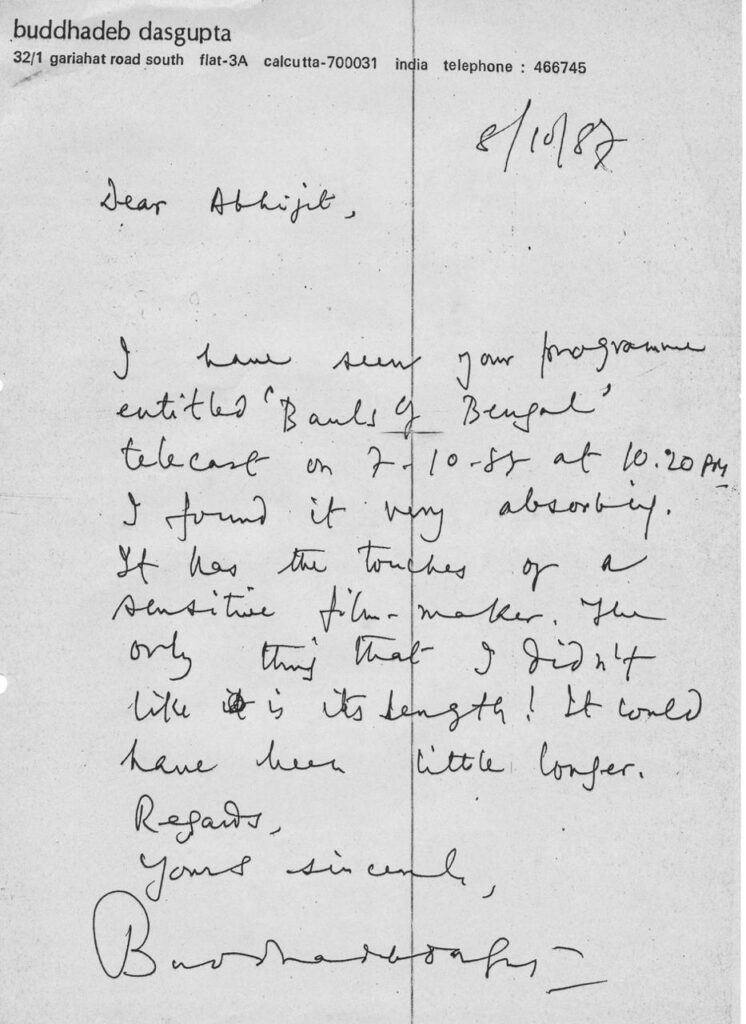 buddhadeb dasgupta
32/1 gariahat road south flat-3A calcutta-700031 india telephone : 466745
8/10/87
Dear Abhijit,
I have seen your programme
entitled 'Bauls of Bengal'
telecast on 7-10-87 at 10.20 PM
I found it very absorbing.
It has the touches of a
sensitive film-maker. The
only thing that I didn't
like is its length! It could
have been little longer.
Regards,
Yours sincerely,
Buddhadeb Dasgupta